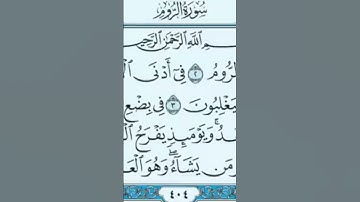 سُورَةُ الرُّومِ
ـمِ اللَّهِ الرَّحْمَٰنِ الرَّحِيـ
ـرُّومُ ٢ فِىٓ أَدْنَى ٱلْـ
ـيَغْلِبُونَ ٣ فِى بِضْعِ
ـدُۚ وَيَوْمَئِذٍ يَفْرَحُ ٱلْـ
مَن يَشَآءُۖ وَهُوَ ٱلْعَـ
٤٠٤